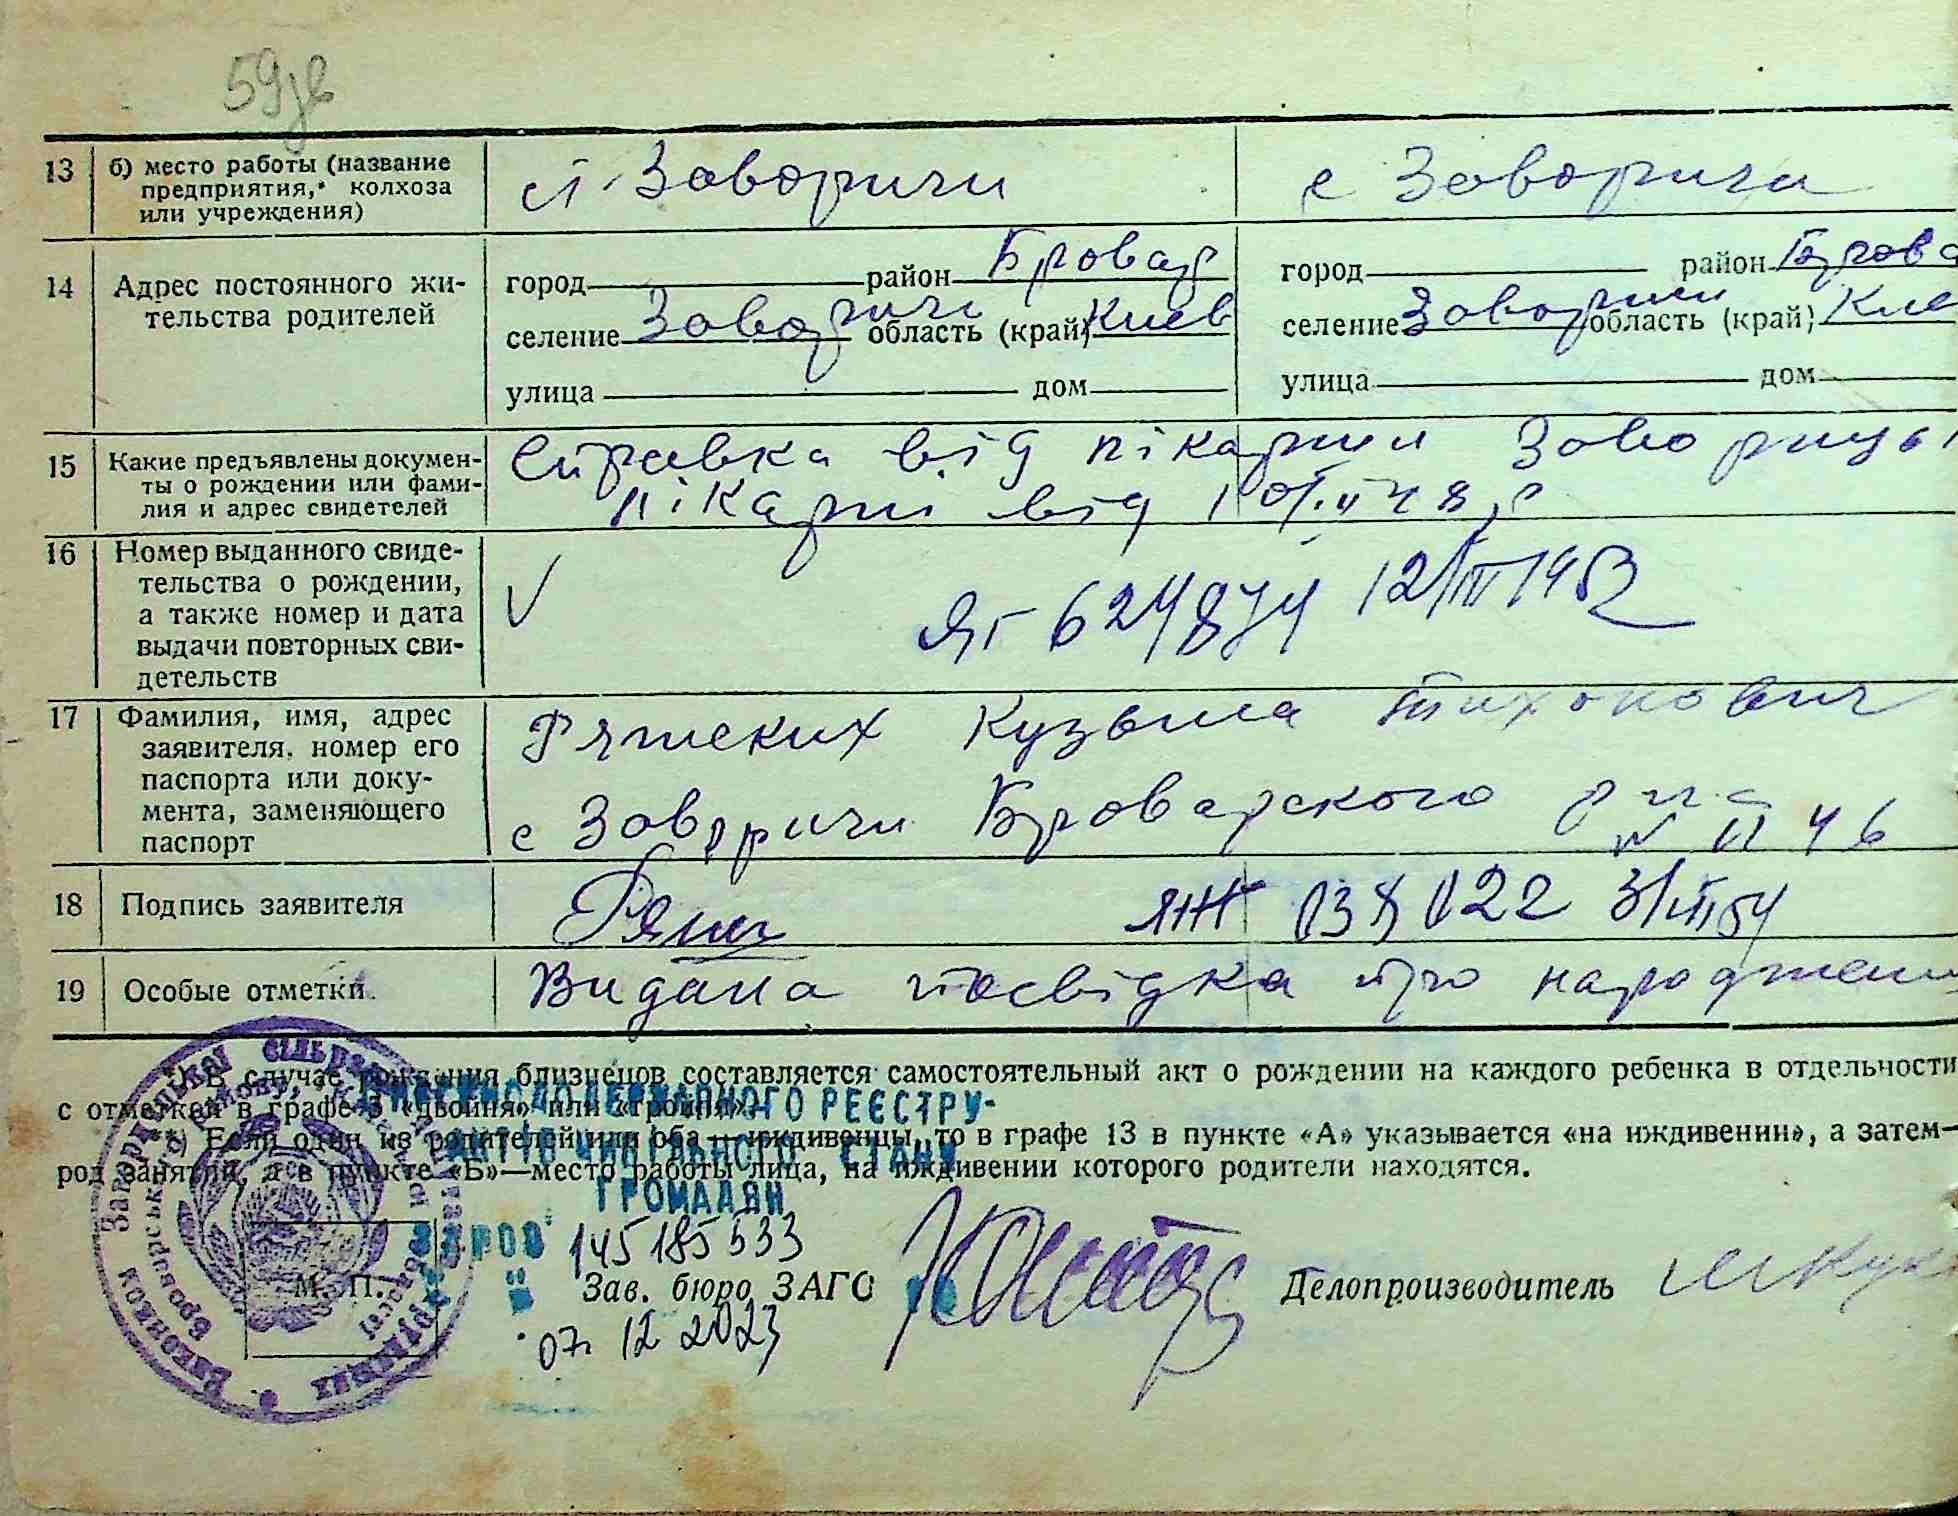 59зв
13 б) место работы (название предприятия, колхоза или учреждения) с. Заворичи с Заворичи
14 Адрес постоянного жительства родителей
город район Бровар город район Брова
селение Заворичі область (край) Киев селение Заворичи область (край) Кие
улица дом улица дом
15 Какие предъявлены документы о рождении или фамилия и адрес свидетелей
Справка від лікарни Заворицьк
лікарні від
16 Номер выданного свидетельства о рождении, а также номер и дата выдачи повторных свидетельств
V ЯГ 624874 12/III 1953
17 Фамилия, имя, адрес заявителя, номер его паспорта или документа, заменяющего паспорт
Ряжских Кузьма Тихонович
с Заворичи Броварского р-на
№ II 46
18 Подпись заявителя Ряж ЯЖ 038022 31/III 54
19 Особые отметки. Видана посвідка про народжен
*) В случае рождения близнецов составляется самостоятельный акт о рождении на каждого ребенка в отдельности
с отметкой в графе 3 «двойня» или «тройня».
**) Если один из родителей или оба—иждивенцы, то в графе 13 в пункте «А» указывается «на иждивении», а затем—
род занятий, а в пункте «Б»—место работы лица, на иждивении которого родители находятся.
ВНЕСЕНО ДО ДЕРЖАВНОГО РЕЄСТРУ
АКТІВ ЦИВІЛЬНОГО СТАНУ
ГРОМАДЯН
145185533
М. П. Зав. бюро ЗАГС Делопроизводитель
07. 12 2023